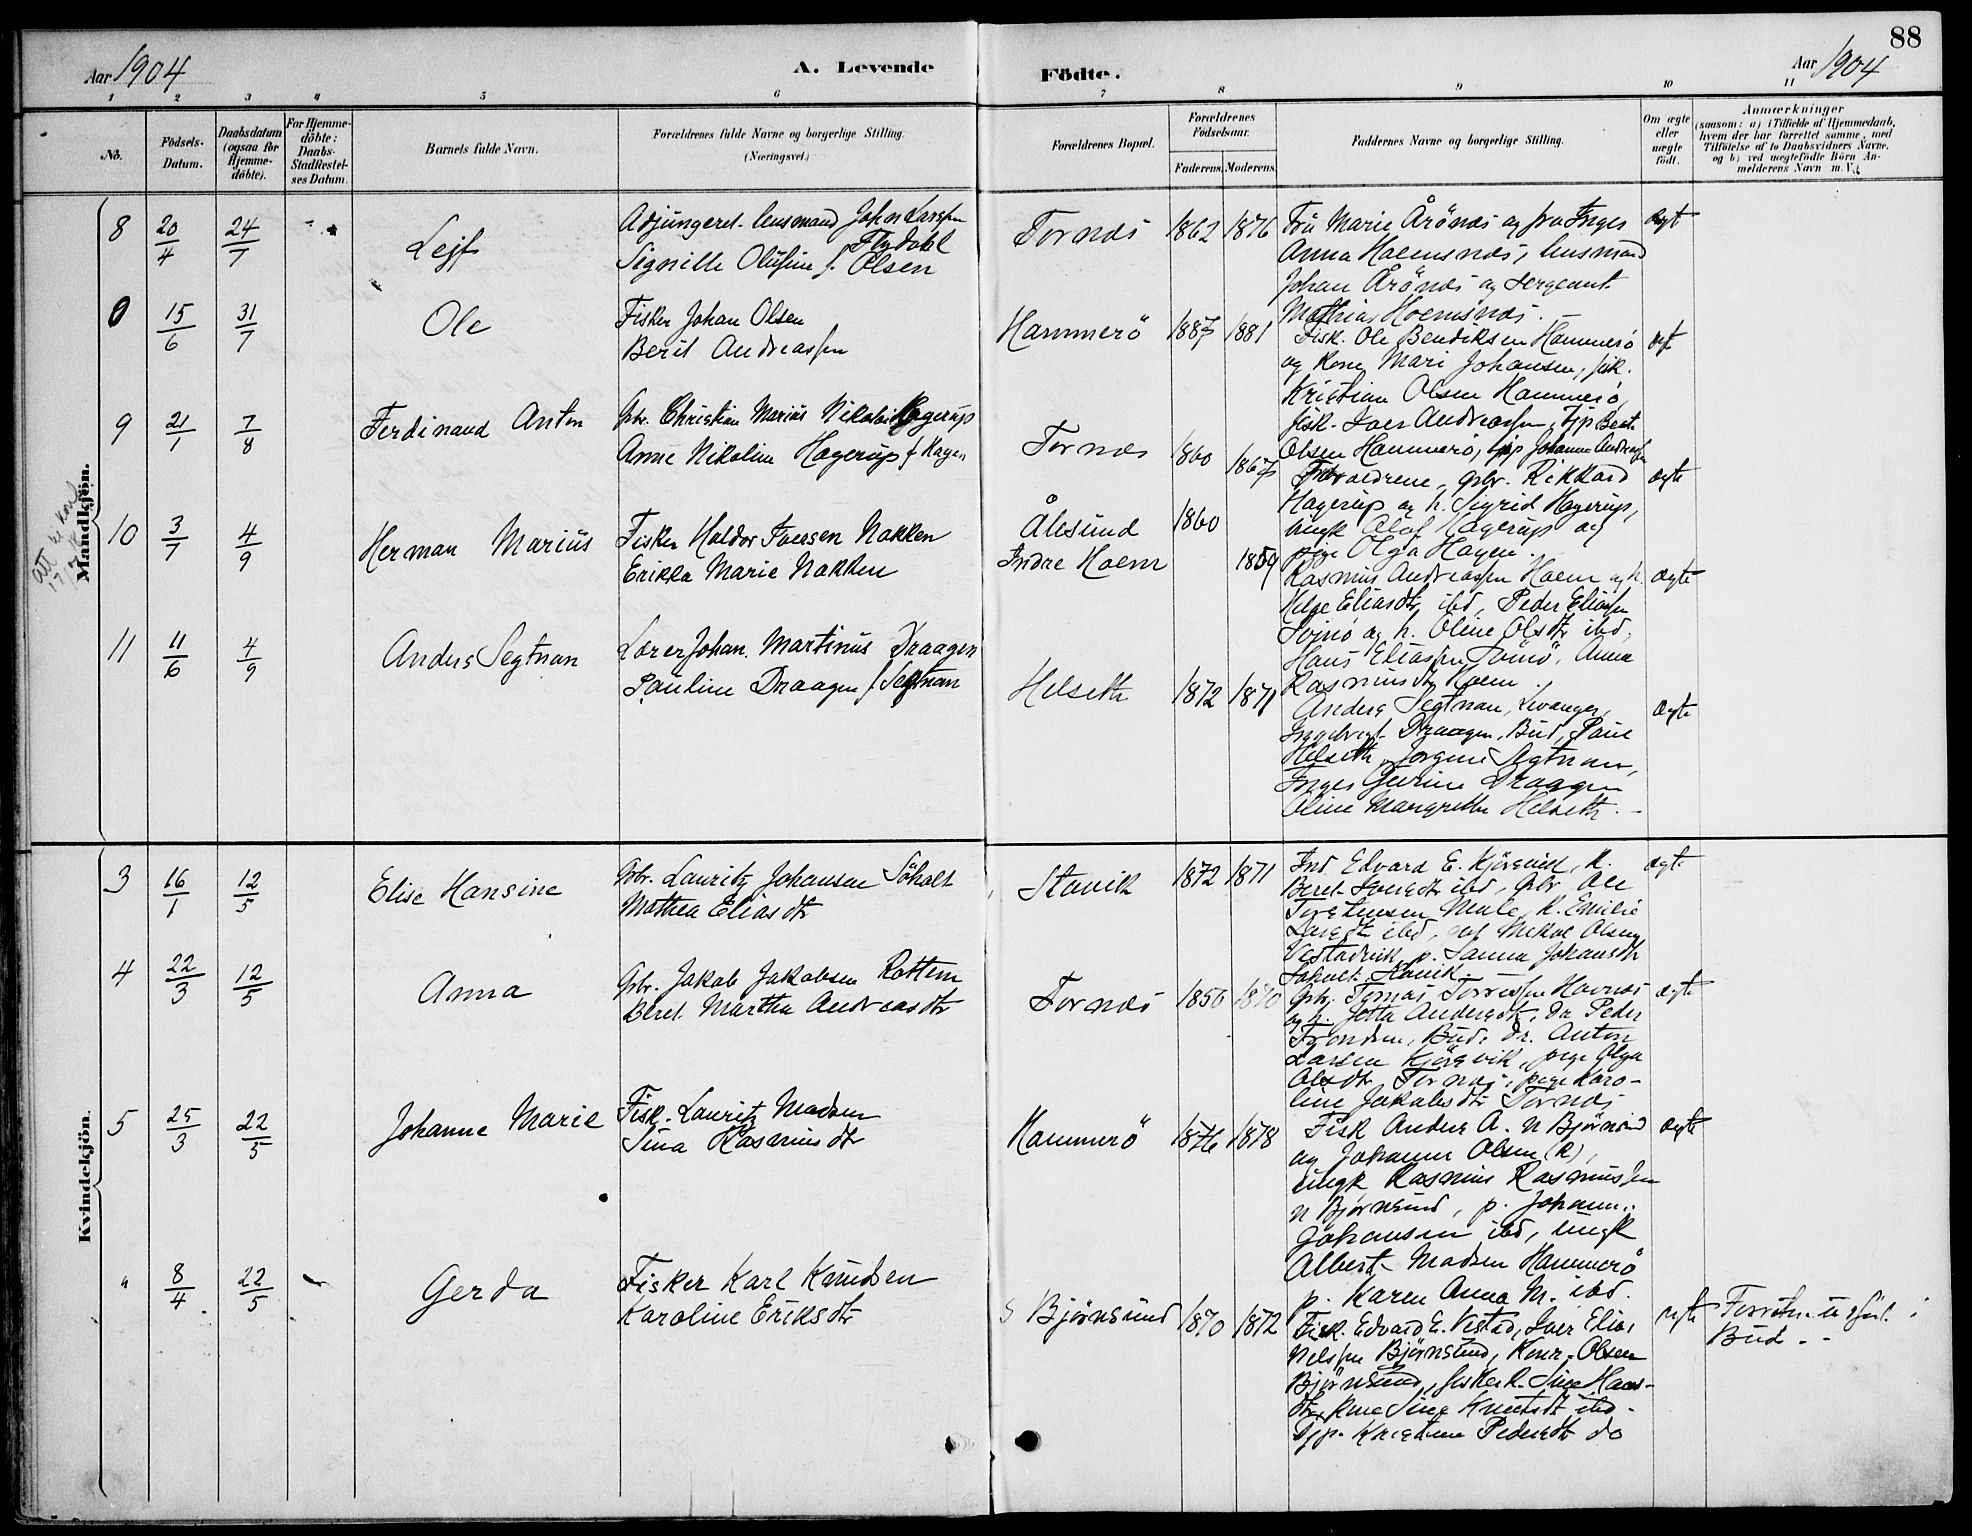 88
Aar 1904
A. Levende
Födte.
Aar 1904
1 2 3 4 5 6 7 8 9 10 11
No.
Födsels-
Datum.
Daabsdatum
(ogsaa for
Hjemme-
döbte).
For Hjemme-
döbte:
Daabs-
Stadfæstel-
ses Datum.
Barnets fulde Navn.
Forældrenes fulde Navne og borgerlige Stilling.
(Næringsvei.)
Forældrenes Bopæl.
Forældrenes
Födselsaar.
Faderens.
Moderens.
Faddernes Navne og borgerlige Stilling.
Om ægte
eller
uægte
födt.
Anmærkninger
(saasom: a) i Tilfælde af Hjemmedaab,
hvem der har forrettet samme, med
Tilföielse af to Daabsvidners Navne,
og b) ved uægtefödte Börn An-
melderens Navn m. V.)
Mandkjön.
8 20/4 24/7
Lejf
Adjungeret lensmand Johs Larssen
Flydahl
Signille Olufine f. Olsen
Tornæs 1862 1876
Fru Marie Årönæs og frøken Inger
Anna Hoemsnæs, lensmand
Johan Årönæs og Sergeant
Mathias Hoemsnæs.
Ægt
0 15/6 31/7
Ole
Fisker Johan Olsen
Berit Andreassen
Hammerö 1887 1881
Fisk. Ole Bendiksen Hammerö
og kone Mari Johansen, fisk.
Kristian Olsen Hammerö,
fisk. Iver Andreassen, tjp Berte
Olsen Hammerö, tjp Johanna Andreassen
Æt
9 21/1 7/8
Ferdinand Anton
Gbr. Christian Marius Nikolai Hagerup
Anne Nikoline Hagerup f. Hagen
Tornæs 1860 1867
Forældrene, gbr. Rikkard
Hagerup og h. Sigrid Hagerup,
ungk Olaf Hagerup og
pige Olga Hagen.
Ægte
10 3/7 4/9
Herman Marius
Fisker Haldor Iversen Nakken
Erikka Marie Nakken
Ålesund 1860
Indre Hoem 1859
Rasmus Andreassen Hoem og h.
Helge Eliasdtr ibd, Peder Eliassen
og h. Oline Olsdtr ibd,
Hans Eliassen, Anna
Rasmusdtr Hoem.
Ægte
11 11/6 4/9
Anders Segtnan
Lærer Johan Martinus Draagen
Pauline Draagen f. Segtnan
Helseth 1872 1871
Anders Segtnan, Levanger,
Ingebrigt Draagen, Bud, Paul
Helseth, Jorgine Segtnan,
Inger Gurine Draagen
Oline Margrethe Helseth.
Ægte
Kvindekjön.
3 16/1 12/5
Elise Hansine
Gbr. Lauritz Johansen Söholt
Mathea Eliasdtr
Stavik 1872 1871
Ind Edvard E. Kjörsvik, k.
Beret Iversdtr ibd, gbr Ole
Torstensen Male, k. Emilie
Larsdtr ibd, Mikal Olsen
Vestadvik, p. Sanna Johansdtr
Söholt Stavik
Ægte
4 22/3 12/5
Anna
Gbr. Jakob Jakobsen Rottem
Beret Martha Andreasdtr
Tornæs 1856 1870
Gbr. Tomas Torresen Havnæs
og h. Jetta Andersdtr, Dr Peder
Trondsen, Bud, Dr. Anton
Larsen Kjörsvik, pige Olga
Olsdtr Tornæs, pige Karo-
line Jakobsdtr Tornæs
Ægte
5 25/3 22/5
Johanne Marie
Fisk. Lauritz Madsen
Sina Rasmusdtr
Hammerö 1876 1878
Fisk Anders A. n Björnsund
og Johanna Olsen (k),
ungk Rasmus Rasmussen
n Björnsund, p. Johanne
Johansen ibd, ungk
Albert Madsen Hammerö
p. Karen Anna M. ibd.
Ægte
" 8/4 22/5
Gerda
Fisker Karl Knudsen
Karoline Eriksdtr
S Björnsund 1870 1872
Fisk. Edvard E. Vestad, Iver Elias
Nelssen Björnsund, Konr. Olsen
Björnsund, fiskerk. Sine Hans-
dtr, kone Sine Knutsdt ibd.
Tjp. Kristine Pedersdt do
Ægte
Bud.